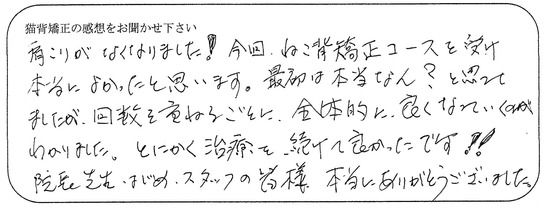 猫背矯正の感想をお聞かせ下さい
肩こりがなくなりました!今回、ねこ背矯正コースを受け
本当によかったと思います。最初は本当なん?と思って
ましたが、回数を重ねるごとに、全体的に、良くなっていくのが
わかりました。とにかく治療を、続けて良かったです!!
院長先生はじめ、スタッフの皆様、本当にありがとうございました。